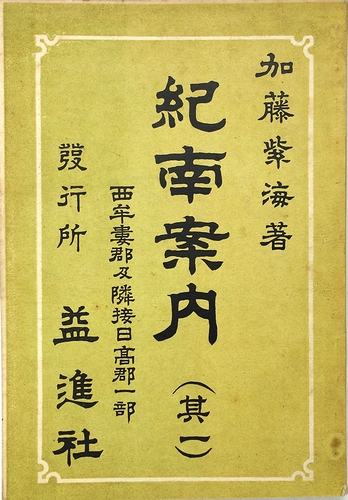 加藤紫海著
紀南案内（其一）
西牟婁郡及隣接日高郡一部
發行所 益進社